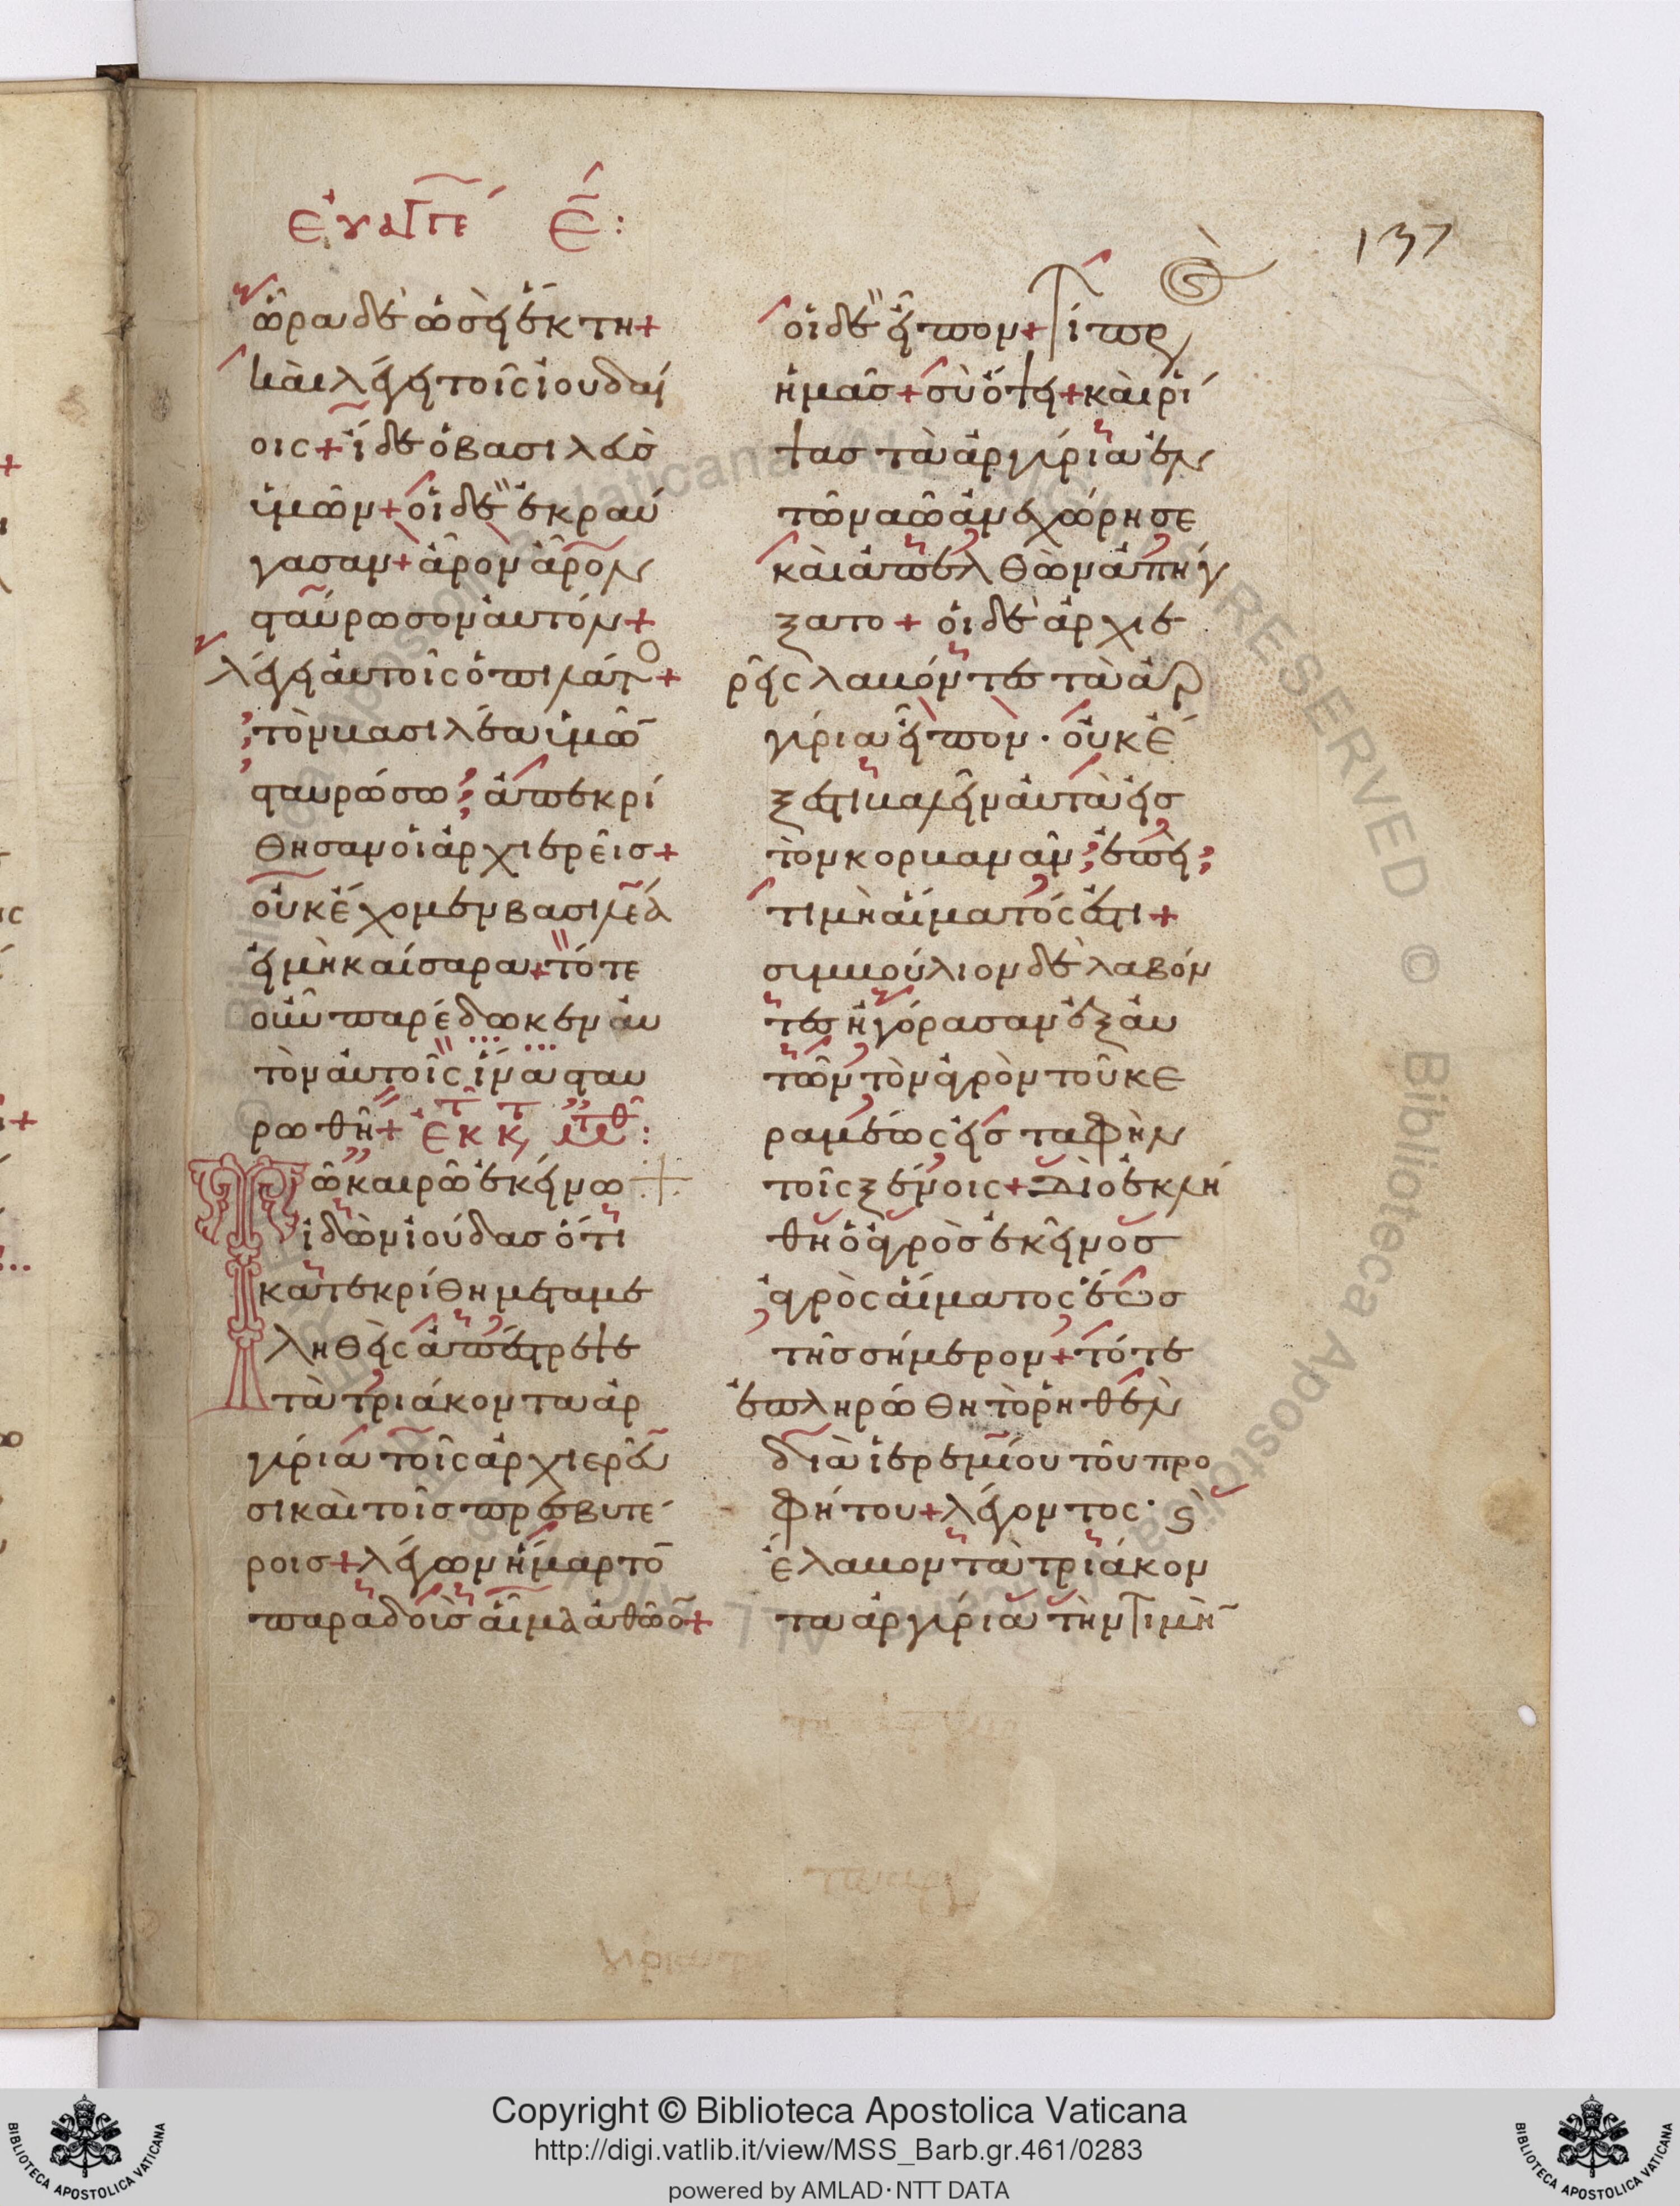 ἐυαγγε ε:
137
ὥρα δὲ ὡσεὶ ἕκτη+
καὶ λέγει τοῖς ἰουδαί
οις+ἴδε ὁ βασιλεὺσ
ὑμῶν+οἱ δὲ ἐκραύ
γασαν+ἆρον ἆρον
σταύρωσον αὐτόν+
λέγει αὐτοῖς ὁ πιλάτο+
τὸν βασιλέα ὑμῶ
σταυρώσω; ἀπεκρί
θησαν οἱ ἀρχιερεῖσ+
οὐκ ἔχομεν βασιλέα
εἰ μὴ καίσαρα+τότε
οὖν παρέδωκεν αὐ
τὸν αὐτοῖς ἵνα σταυ
ρωθῆ+ ἐκ τ κ,τ ματθ:
Τῶ καιρῶ ἐκείνω
ἰδὼν ἰούδασ ὅτι
κατεκρίθη μεταμε
ληθεὶς ἀπέστρεψε
τὰ τριάκοντα ἀρ
γύρια τοῖς ἀρχιερεῦ
σι καὶ τοῖσ πρεσβυτέ
ροισ+λέγων ἥμαρτο
παραδοὺσ αἷμα ἀθῶο+
οἱ δὲ εἶπον+τί πρ
ἡμᾶσ+σὺ ὄψει+καὶ ῥί
ψασ τὰ ἀργύρια ἐν
τῶ ναῶ ἀνεχώρησε
καὶ ἀπελθὼν ἀπήγ
ξατο+ οἱ δὲ ἀρχιε
ρεῖς λαβόντεσ τὰ ἀρ
γύρια εἶπον· οὐκ ἔ
ξεστι βαλεῖν αὐτὰ εἰσ
τὸν κορβανᾶν; ἐπεὶ;
τιμὴ αἵματός ἐστι+
συμβούλιον δὲ λαβόν
τεσ ἠγόρασαν ἐξ αὐ
τῶν τὸν ἀγρὸν τοῦ κε
ραμέως εἰσ ταφὴν
τοῖς ξένοις+διὸ ἐκλή
θη ὁ ἀγρὸσ ἐκεῖνοσ
ἀγρὸς αἵματος ἕωσ
τῆσ σήμερον+τότε
ἐπληρώθη τὸ ῥηθὲν
διὰ ἱερεμίου τοῦ προ
φήτου+λέγοντος· ϛ
ἔλαβον τὰ τριάκον
τα ἀργύρια τὴν τιμὴ
Copyright © Biblioteca Apostolica Vaticana
http://digi.vatlib.it/view/MSS_Barb.gr.461/0283
powered by AMLAD·NTT DATA
BIBLIOTECA APOSTOLICA VATICANA
BIBLIOTECA APOSTOLICA VATICANA